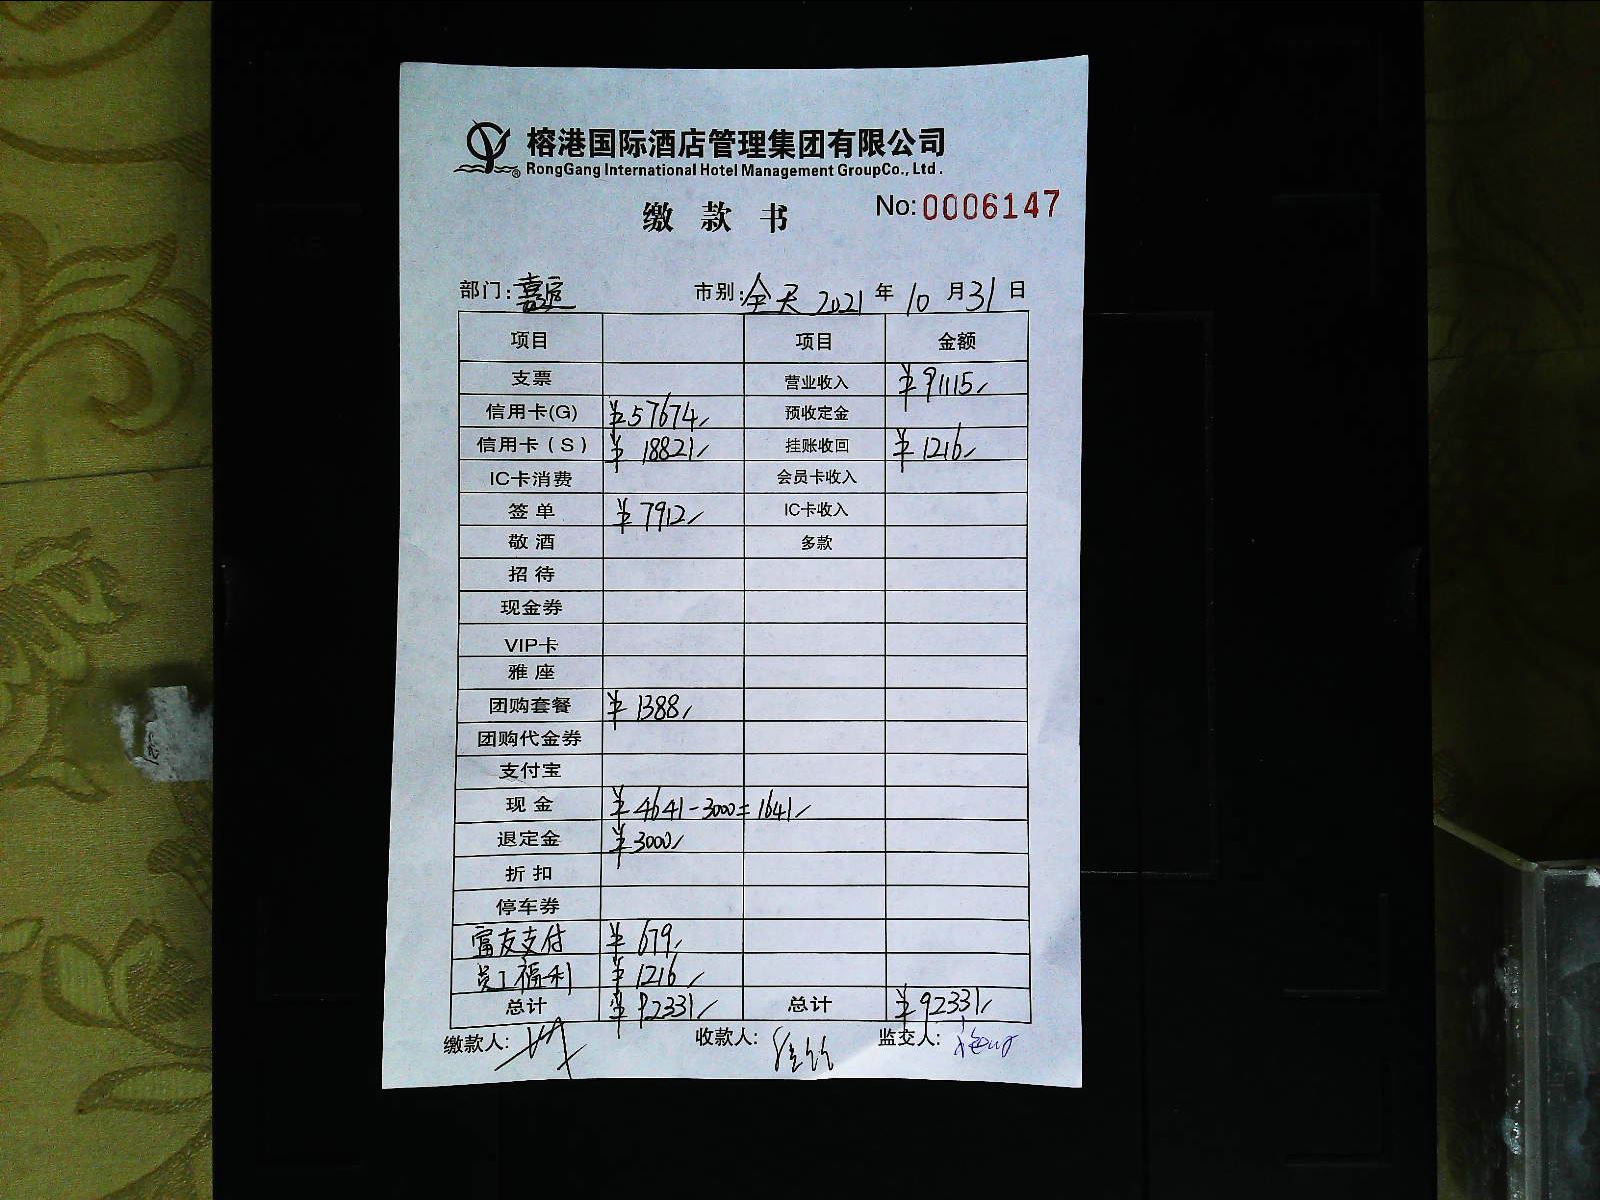 榕港国际酒店管理集团有限公司
RongGang International Hotel Management GroupCo., Ltd.
缴 款 书 No:0006147
部门:嘉宴 市别:全天 2021 年 10 月 31 日
项目 项目 金额
支票 营业收入 ¥91115
信用卡(G) ¥57674 预收定金
信用卡(S) ¥18821 挂账收回 ¥1216
IC卡消费 会员卡收入
签 单 ¥7912 IC卡收入
敬 酒 多款
招 待
现金券
VIP卡
雅 座
团购套餐 ¥1388
团购代金券
支付宝
现 金 ¥4641-3000=1641
退定金 ¥3000
折 扣
停车券
富友支付 ¥679
员工福利 ¥1216
总计 ¥92331 总计 ¥92331
缴款人: 收款人: 监交人: